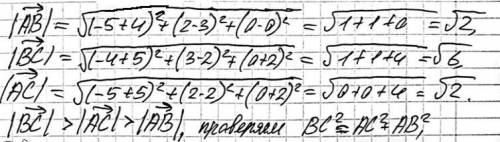 |AB⃗| = √((-5+4)²+(2-3)²+(0-0)²) = √(1+1+0) = √2,
|BC⃗| = √((-4+5)²+(3-2)²+(0+2)²) = √(1+1+4) = √6,
|AC⃗| = √((-5+5)²+(2-2)²+(0+2)²) = √(0+0+4) = √2.
|BC⃗| > |AC⃗| > |AB⃗|, проверяем BC² = AC² + AB²,